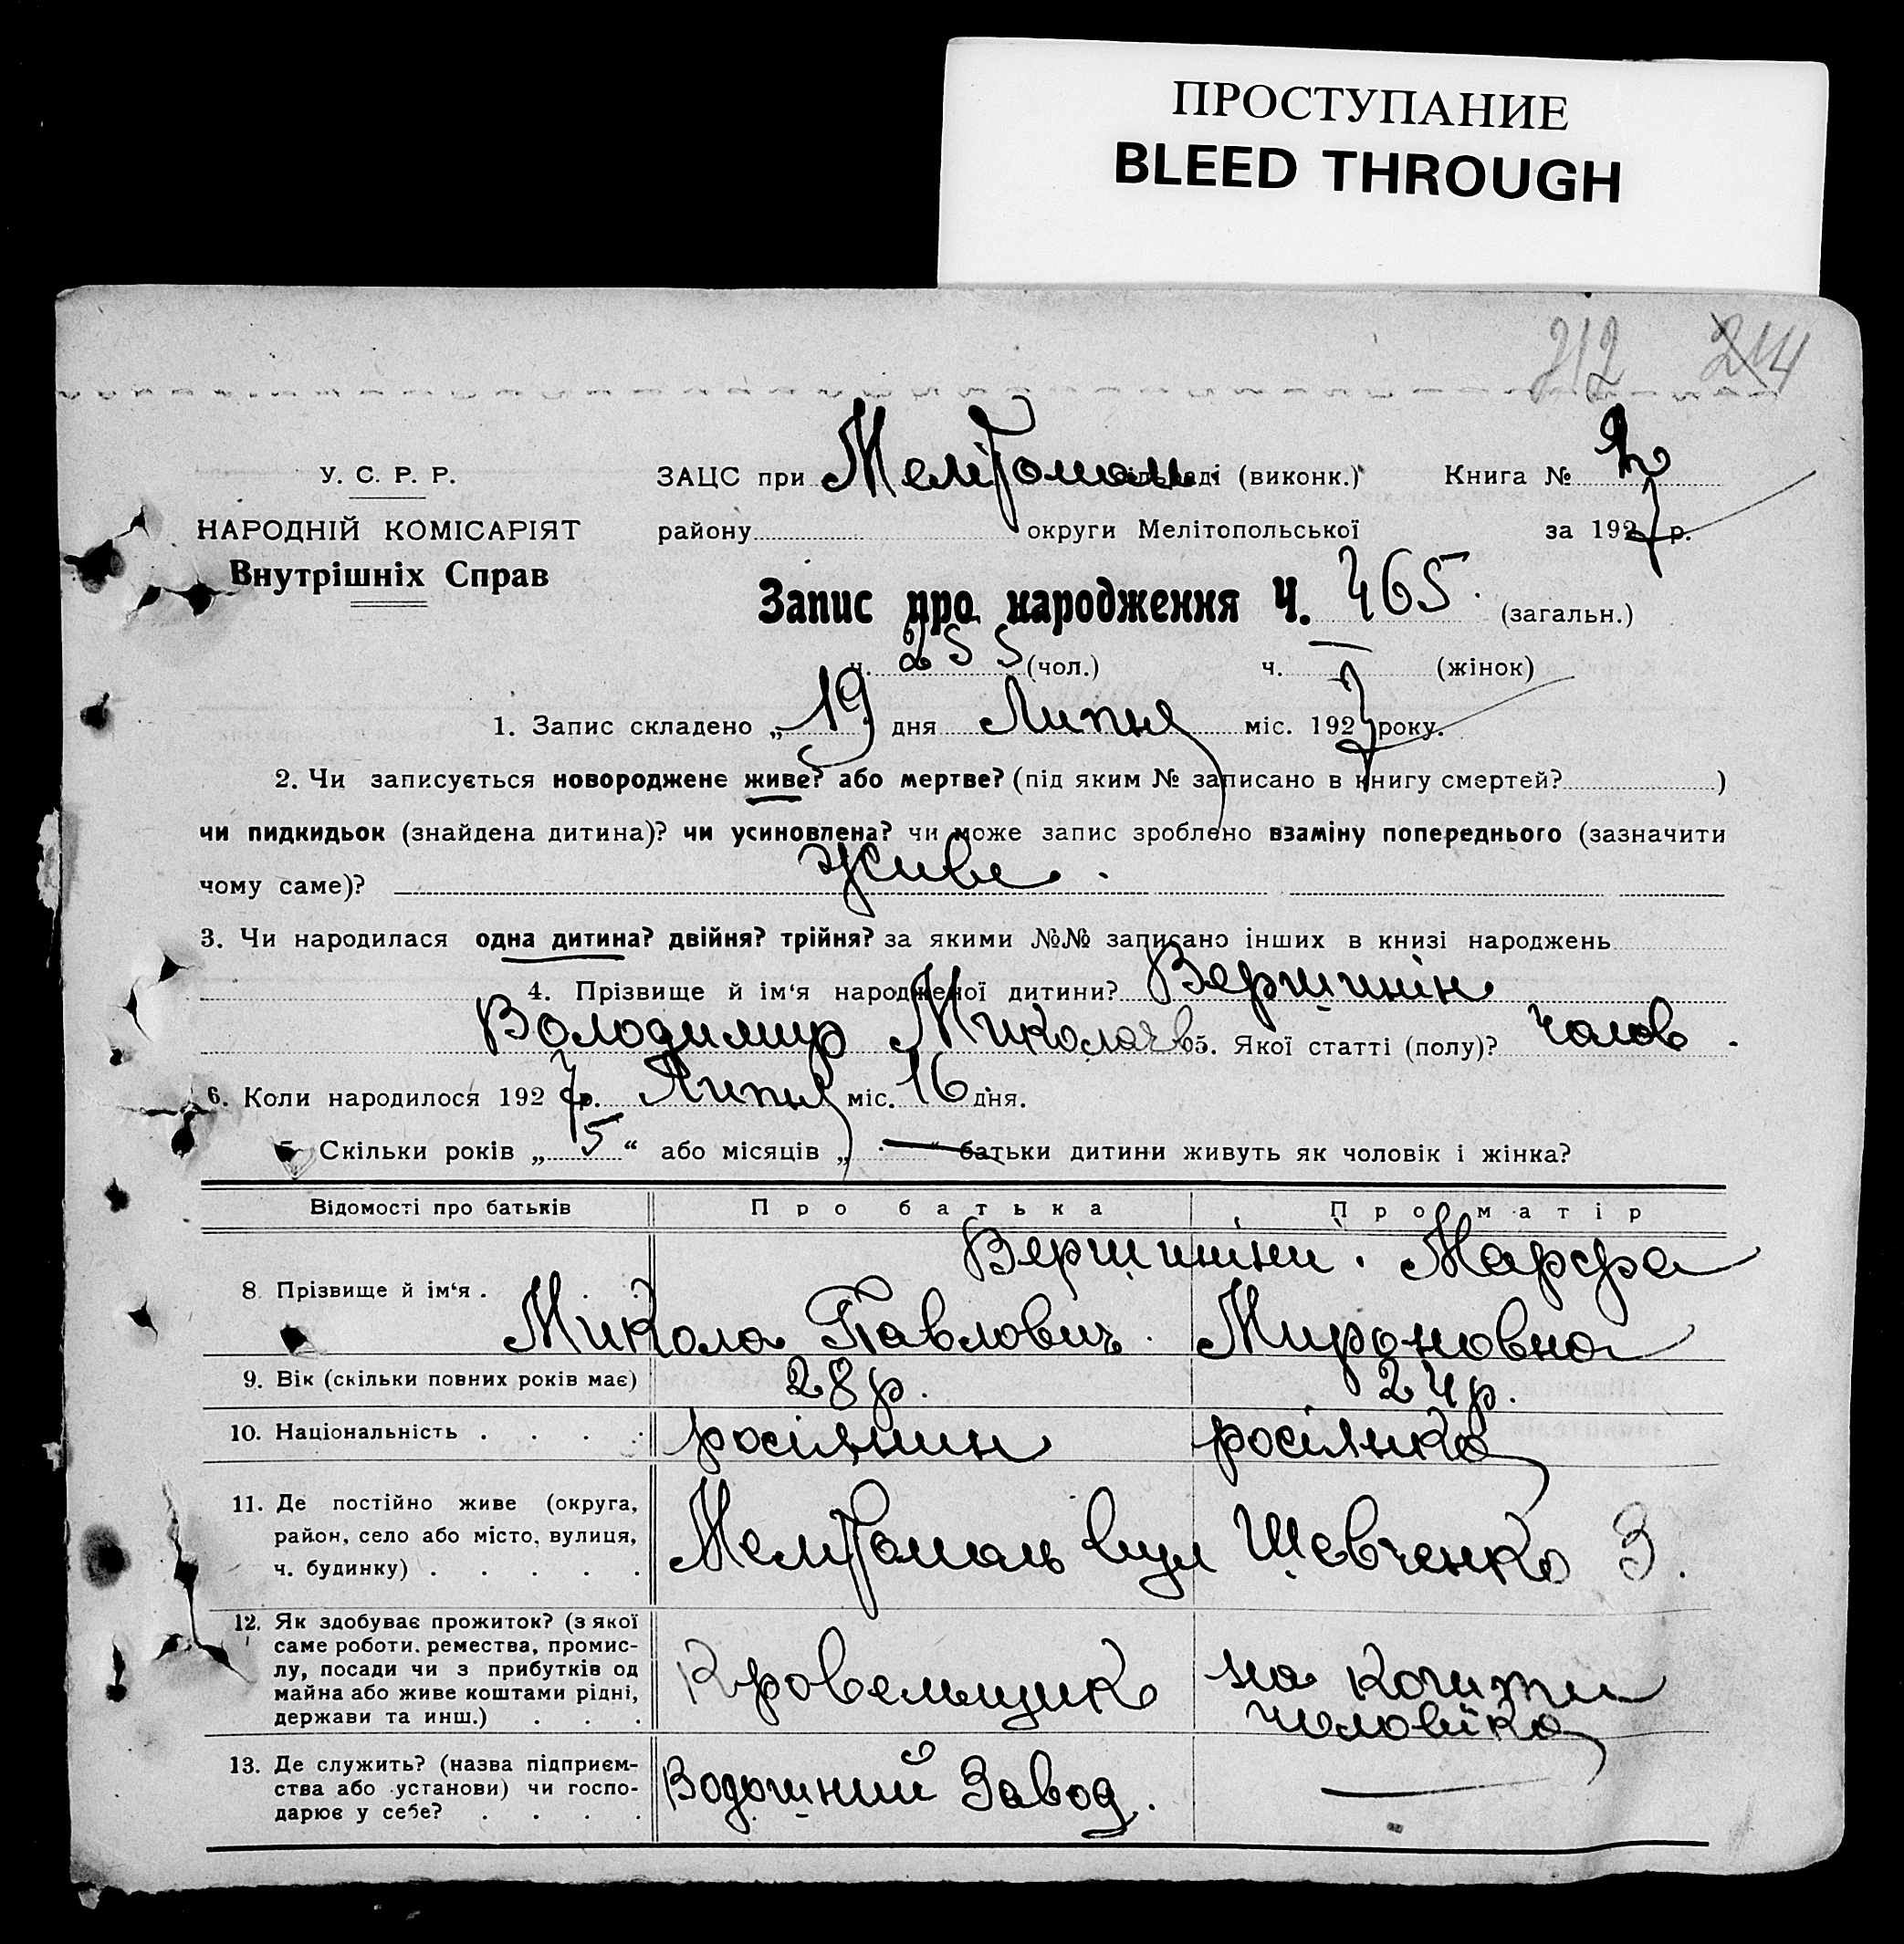 ПРОСТУПАНИЕ
BLEED THROUGH
212 214
У. С. Р. Р.
НАРОДНІЙ КОМІСАРІЯТ
Внутрішніх Справ
ЗАЦС при Мелітопол. сільраді (виконк.) Книга № 2
району округи Мелітопольської за 1927 р.
Запис про народження Ч. 465. (загальн.)
ч. 255 (чол.) ч. — (жінок)
1. Запис складено „19 дня Липня міс. 1927 року.
2. Чи записується новороджене живе? або мертве? (під яким № записано в книгу смертей? )
чи пидкидьок (знайдена дитина)? чи усиновлена? чи може запис зроблено взаміну попереднього (зазначити
чому саме)? Живе.
3. Чи народилася одна дитина? двійня? трійня? за якими №№ записано інших в книзі народжень
4. Прізвище й ім‘я народженої дитини? Вершинін
Володимир Миколаєв 5. Якої статті (полу)? Чолов.
6. Коли народилося 1927 р. Липня міс. 16 дня.
Скільки років „ 5 “ або місяців „ — “ батьки дитини живуть як чоловік і жінка?
Відомості про батьків Про батька Про матір
8. Прізвище й ім‘я . Вершинини. Марфа
Микола Павлович. Мироновна
9. Вік (скільки повних років має) 28 р. 24 р.
10. Національність . . . . росіянин росіянка
11. Де постійно живе (округа,
район, село або місто, вулиця,
ч. будинку) . . . . . Мелітополь вул Шевченко 3.
12. Як здобуває прожиток? (з якої
саме роботи, ремества, промис-
лу, посади чи з прибутків од
майна або живе коштами рідні,
держави та инш.) . . . Кровельщик на кошти
чоловіка
13. Де служить? (назва підприєм-
ства або установи) чи госпо-
дарює у себе? . . . . Завод. —